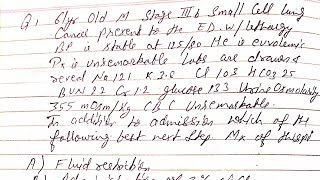 Q: 61yr Old M Stage III b Small Cell lung
Cancel present to the ED. w/ lethargy
BP is stable at 125/80 He is euvolemic
Px is unremarkable Labs are drawn &
reveal Na 121 K 3.8 Cl 108 HCO3 25
BUN 22 Cr 1.2 glucose 133 Urine Osmolarity
355 mOsm/kg CBC Unremarkable.
In addition to admission which of the
following best next step Mx of this pt
A) Fluid restriction